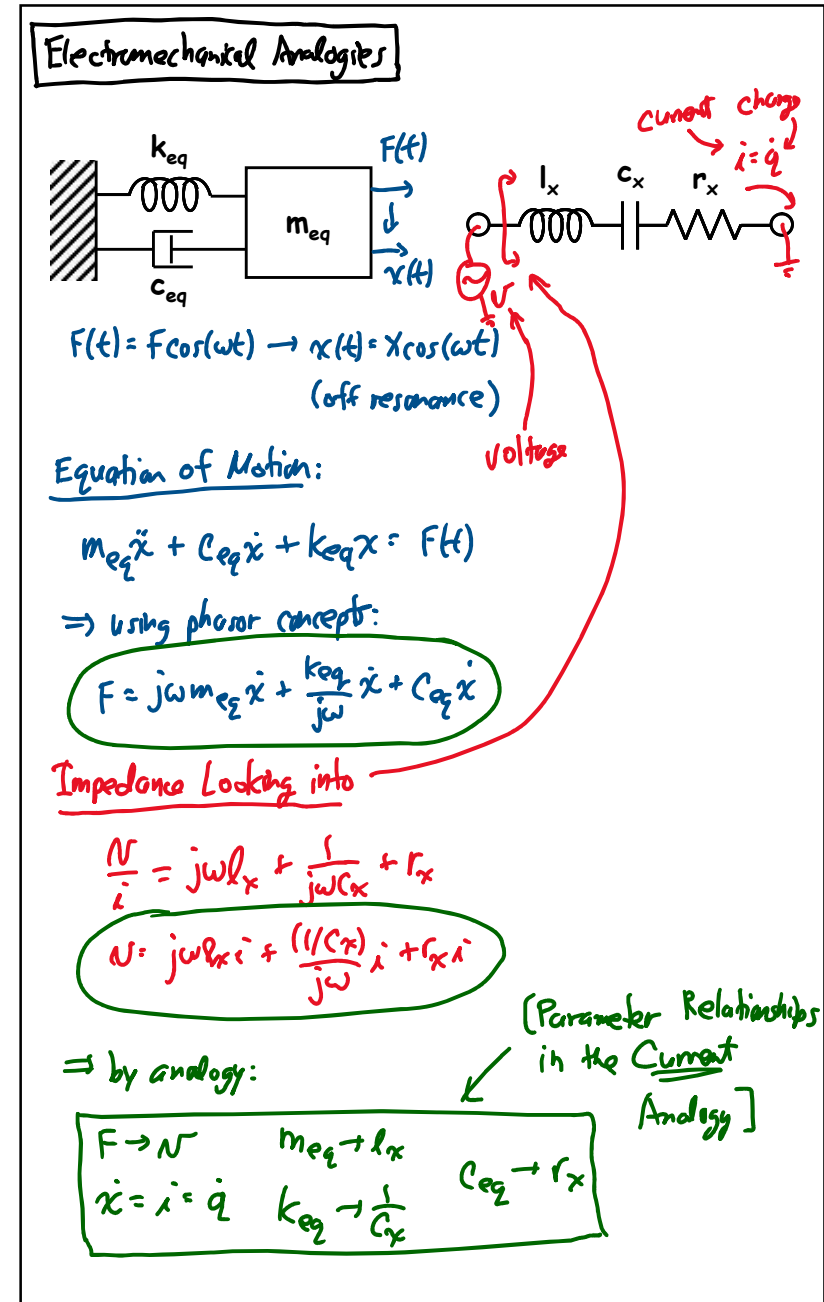 Electromechanical Analogies
k_eq
F(t)
m_eq
c_eq
x(t)
current charge
i = q̇
l_x
c_x
r_x
v
voltage
F(t) = Fcos(ωt) → x(t) = Xcos(ωt)
(off resonance)
Equation of Motion:
m_eq ẍ + c_eq ẋ + k_eq x = F(t)
⇒ using phasor concept:
F = jωm_eq ẋ + k_eq/jω ẋ + c_eq ẋ
Impedance Looking into
v/i = jωl_x + 1/jωc_x + r_x
v = jωl_x i + (1/c_x)/jω i + r_x i
[Parameter Relationships
in the Current
Analogy]
⇒ by analogy:
F → v
m_eq → l_x
c_eq → r_x
ẋ = i = q̇
k_eq → 1/c_x